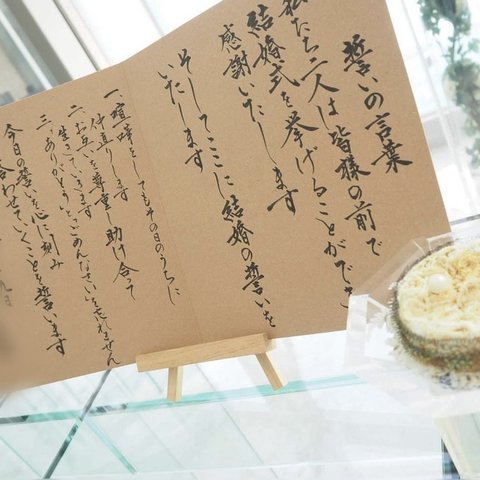 誓いの言葉
私たち二人は皆様の前で
結婚式を挙げることができ
感謝いたします
そしてここに結婚の誓いを
いたします
一、喧嘩をしてもその日のうちに
仲直りします
二、お互いを尊重し助け合って
生きていきます
三、ありがとうとごめんなさいを忘れません
今日の誓いを心に刻み
合わせていくことを誓います
九日